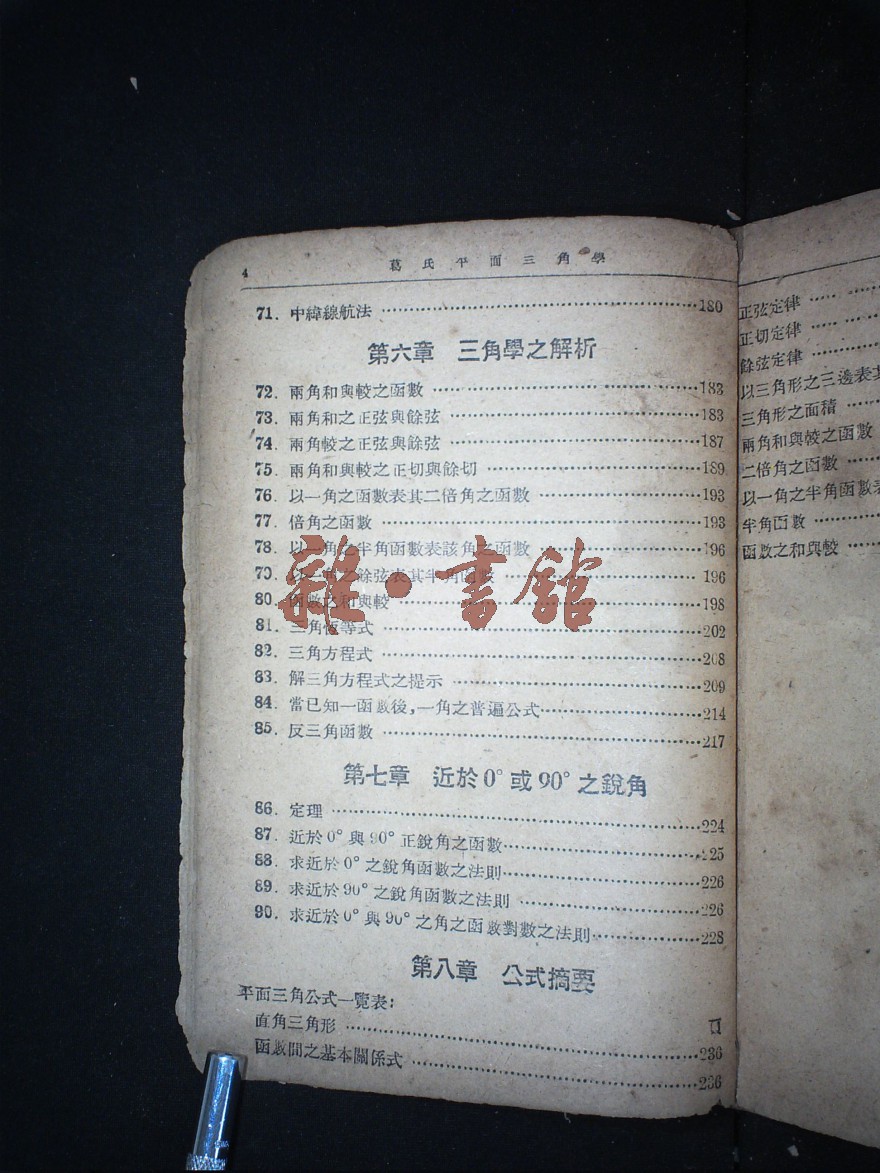 4 葛氏平面三角學
71. 中緯線航法 180
第六章 三角學之解析
72. 兩角和與較之函數 183
73. 兩角和之正弦與餘弦 183
74. 兩角較之正弦與餘弦 187
75. 兩角和與較之正切與餘切 189
76. 以一角之函數表其二倍角之函數 193
77. 倍角之函數 193
78. 以一角之半角函數表該角之函數 196
79. 以一角之餘弦表其半角函數 196
80. 函數之和與較 198
81. 三角恆等式 202
82. 三角方程式 208
83. 解三角方程式之提示 209
84. 當已知一函數後,一角之普遍公式 214
85. 反三角函數 217
第七章 近於0°或90°之銳角
86. 定理 224
87. 近於0°與90°正銳角之函數 225
88. 求近於0°之銳角函數之法則 226
89. 求近於90°之銳角函數之法則 226
90. 求近於0°與90°之角之函數對數之法則 228
第八章 公式摘要
平面三角公式一覽表:
直角三角形 236
函數間之基本關係式 236
正弦定律
正切定律
餘弦定律
以三角形之三邊表其
三角形之面積
兩角和與較之函數
二倍角之函數
以一角之半角函數表
半角函數
函數之和與較
雜·書館